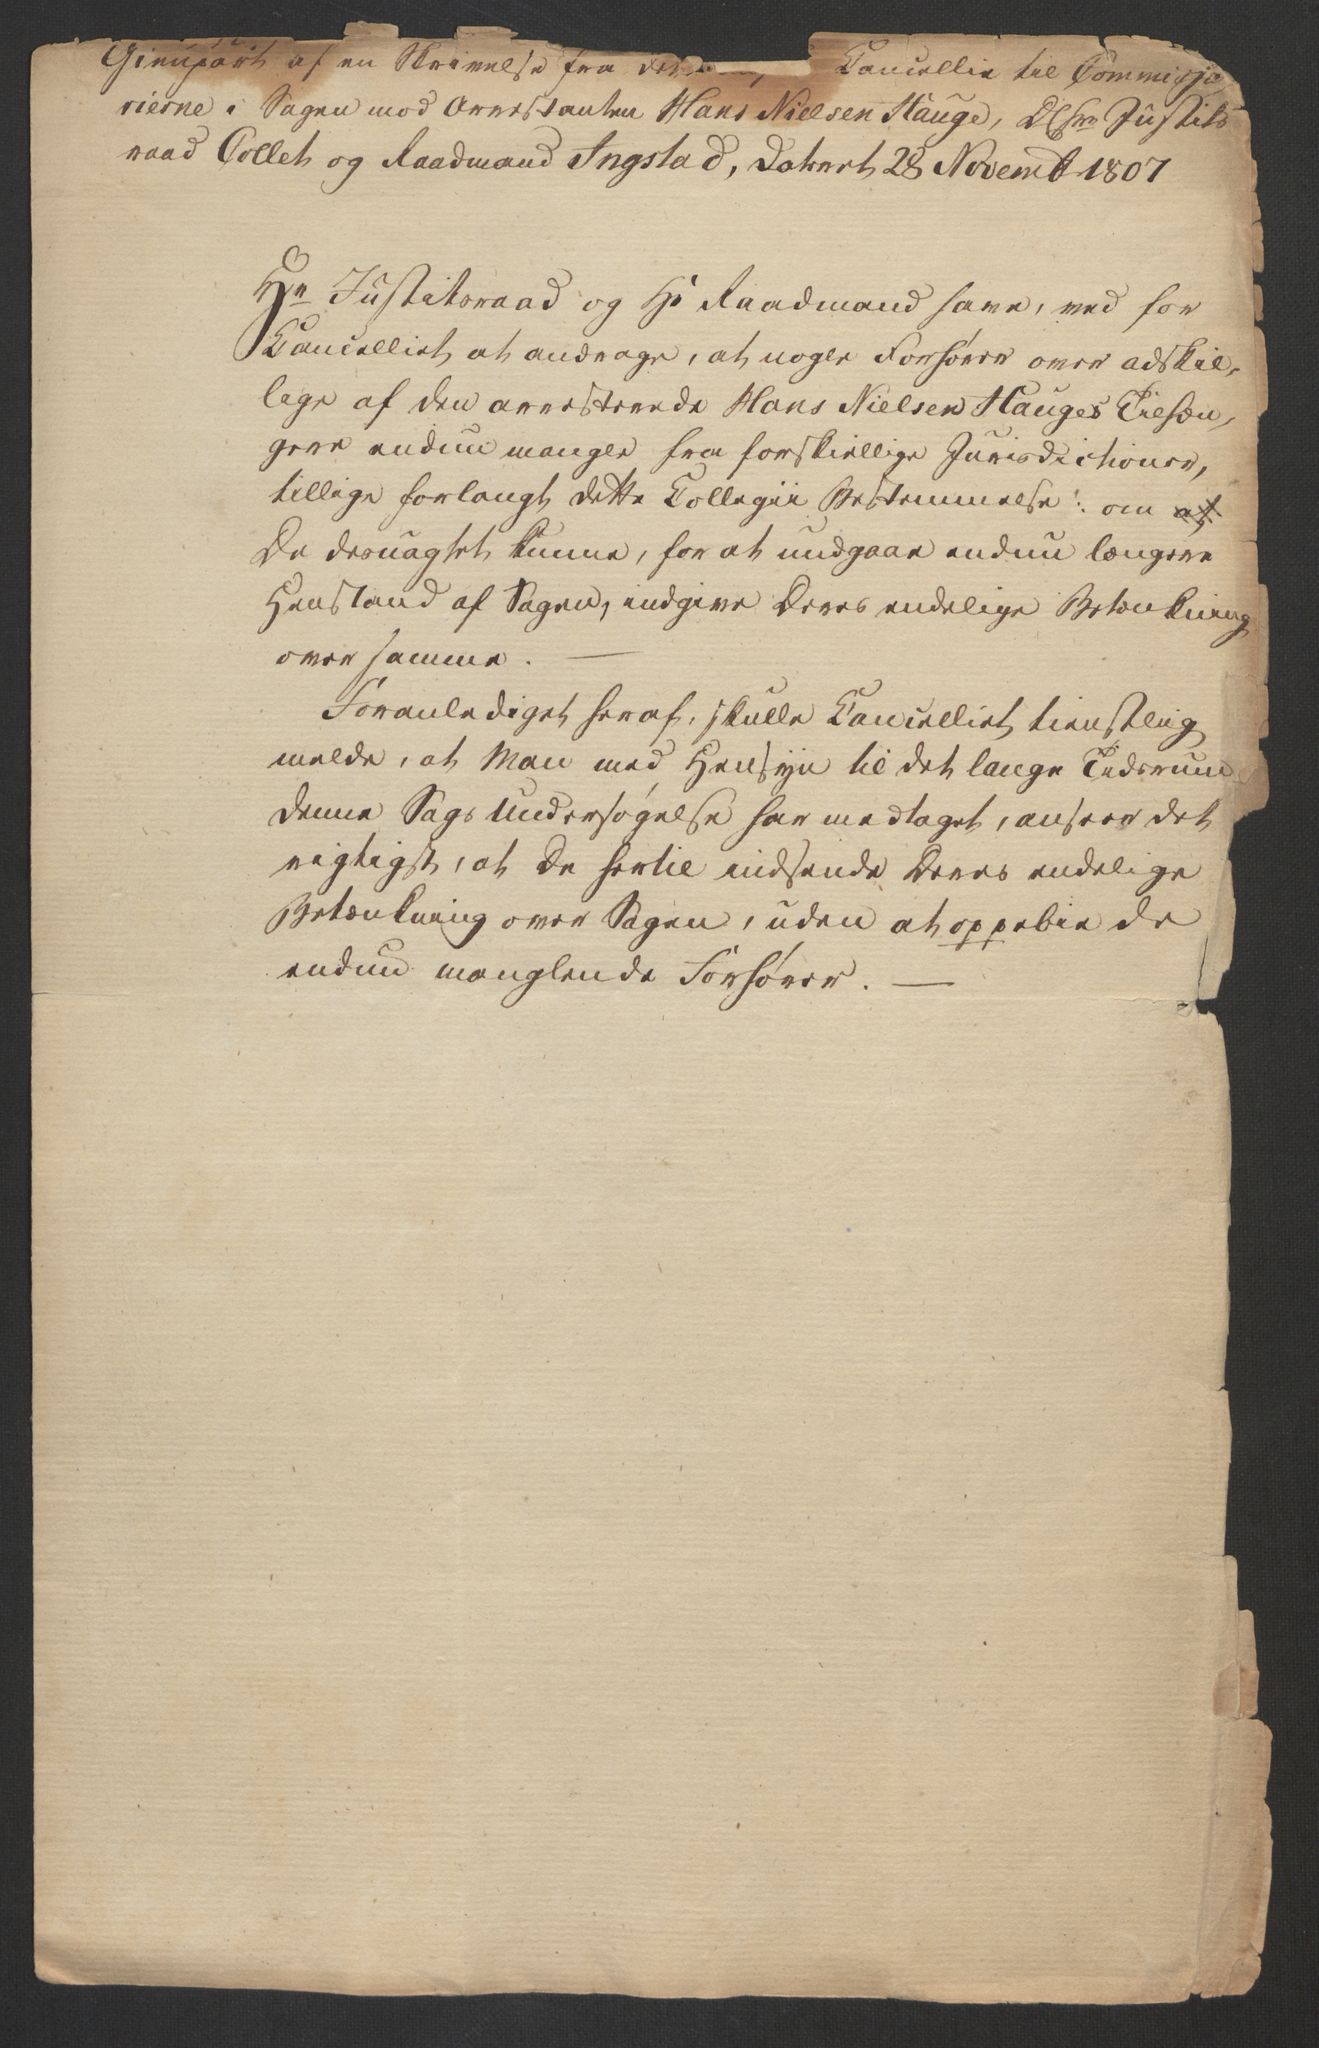 Gienpart af en Skrivelse fra det Cancellie til Commissa
rierne i Sagen mod Arrestanten Hans Nielsen Hauge, DHrr Justits
raad Collet og Raadmand Ingstad, Datert 28 Novemb 1807
Hr Justitsraad og Hr Raadmand have, ved for
Cancelliet at andrage, at nogle Forhører over adskil,
lige af den arresterede Hans Nielsen Hauges Tilhæn,
gere endnu mangle fra forskiellige Jurisdictioner,
tillige forlangt dette Collegii Bestemmelse: om at
De desuagtet kunne, for at undgaae endnu længere
Henstand af Sagen, indgive Deres endelige Betænkning
over samme. —
Foranlediget heraf, skulle Cancelliet tienstlig
melde, at Man med Hensyn til det lange Tidsrum
denne Sags Undersøgelse har medtaget, anseer det
rigtigst, at De hertil indsende Deres endelige
Betænkning over Sagen, uden at oppebie de
endnu manglende Forhører. —